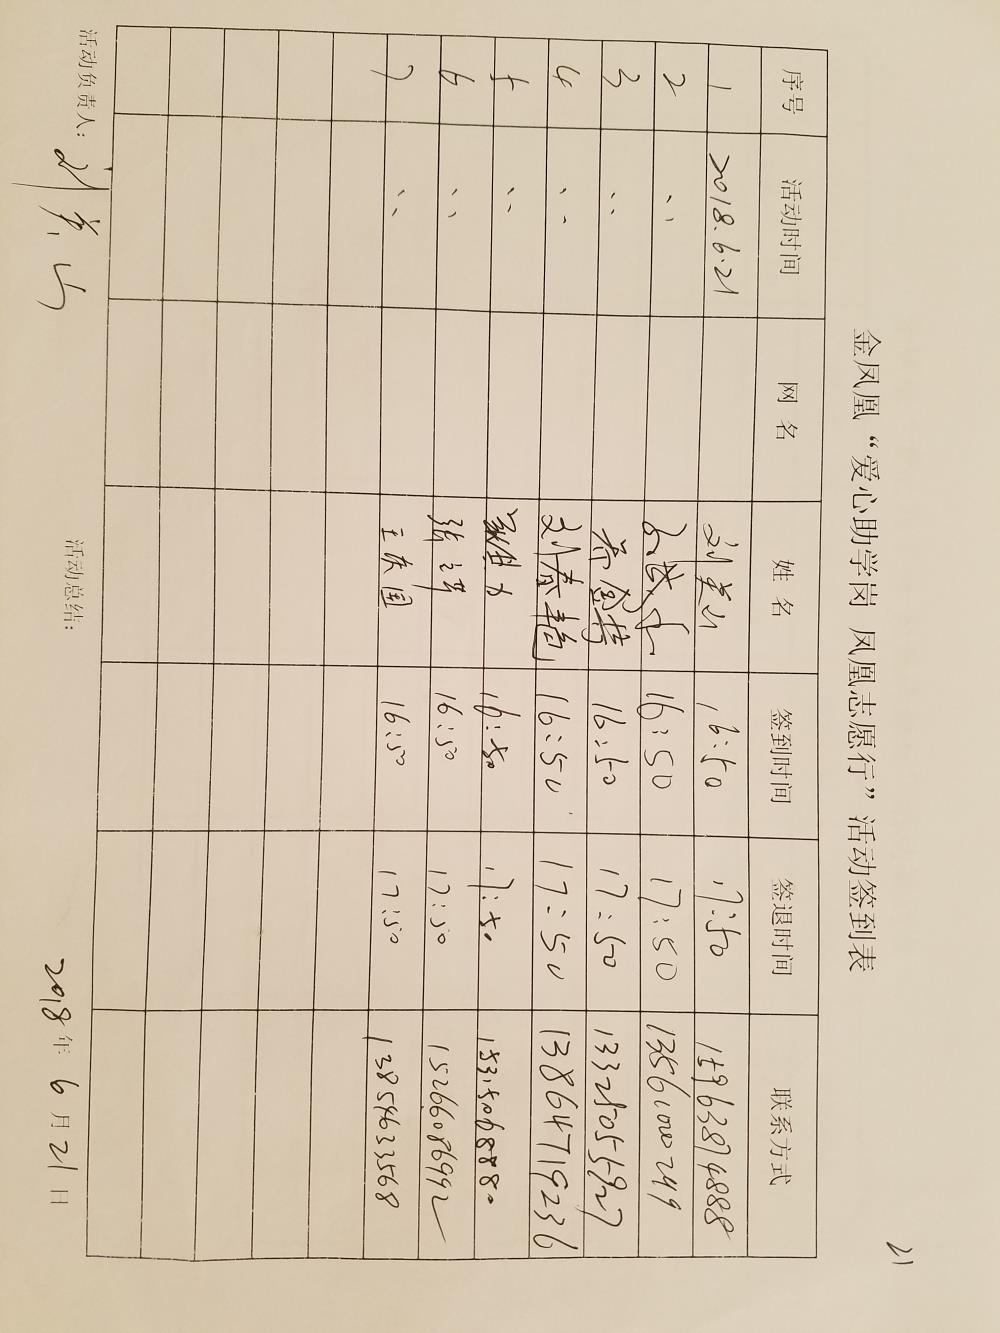 21
金凤凰“爱心助学岗 凤凰志愿行”活动签到表
序号 活动时间 网名 姓名 签到时间 签退时间 联系方式
1 2018.6.21 刘美山 16:50 17:50 15963874888
2 〃 16:50 17:50
3 〃 16:50 17:50 13325053927
4 〃 刘春艳 16:50 17:50 13864719236
5 〃 16:50 17:50 15315068880
6 〃 16:50 17:50 15266086992
7 〃 王庆国 16:50 17:50 13854633568
活动负责人： 刘美山 活动总结： 2018年6月21日